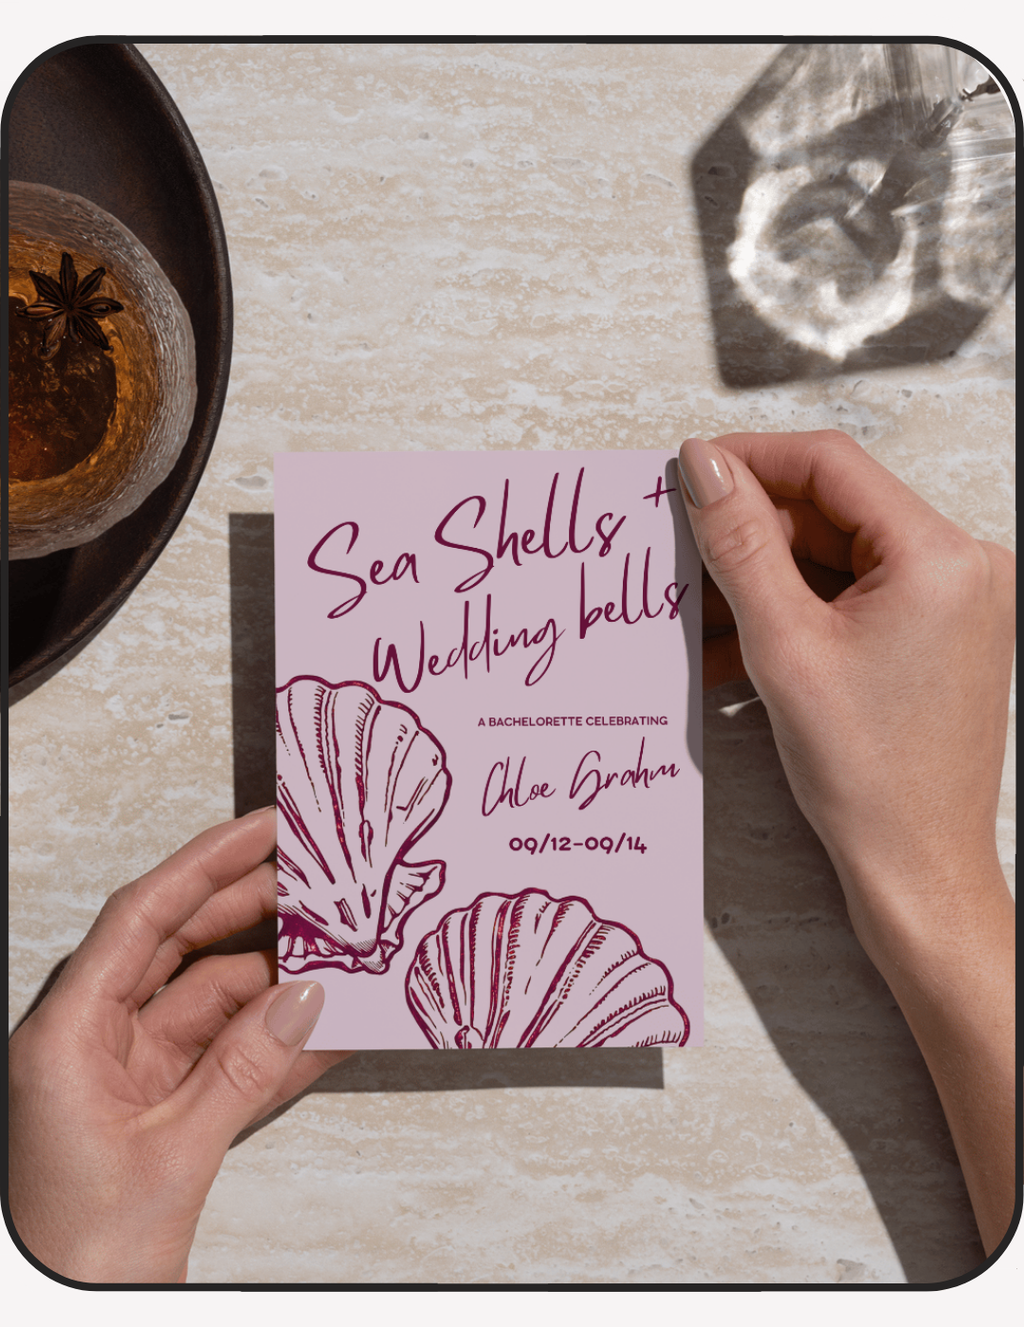 Sea Shells +
Wedding bells
A BACHELORETTE CELEBRATING
Chloe Grahm
09/12-09/14